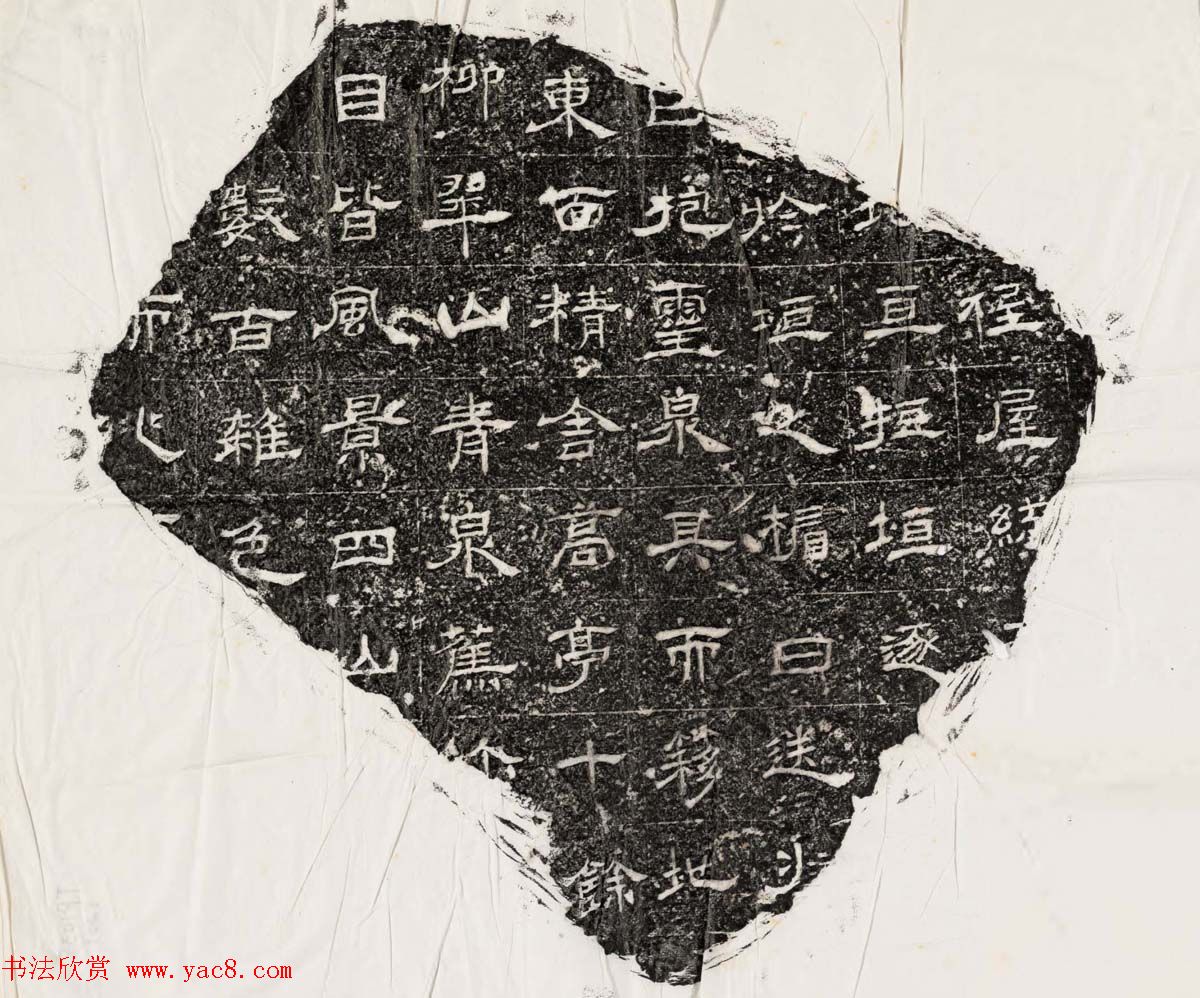 屋結
亘垣逐
於垣之楣曰送
抱靈泉其而簃地
東面精舍高亭十餘
柳翠山青泉蕉
目皆風景四山
數百雜色
而
书法欣赏 www.yac8.com